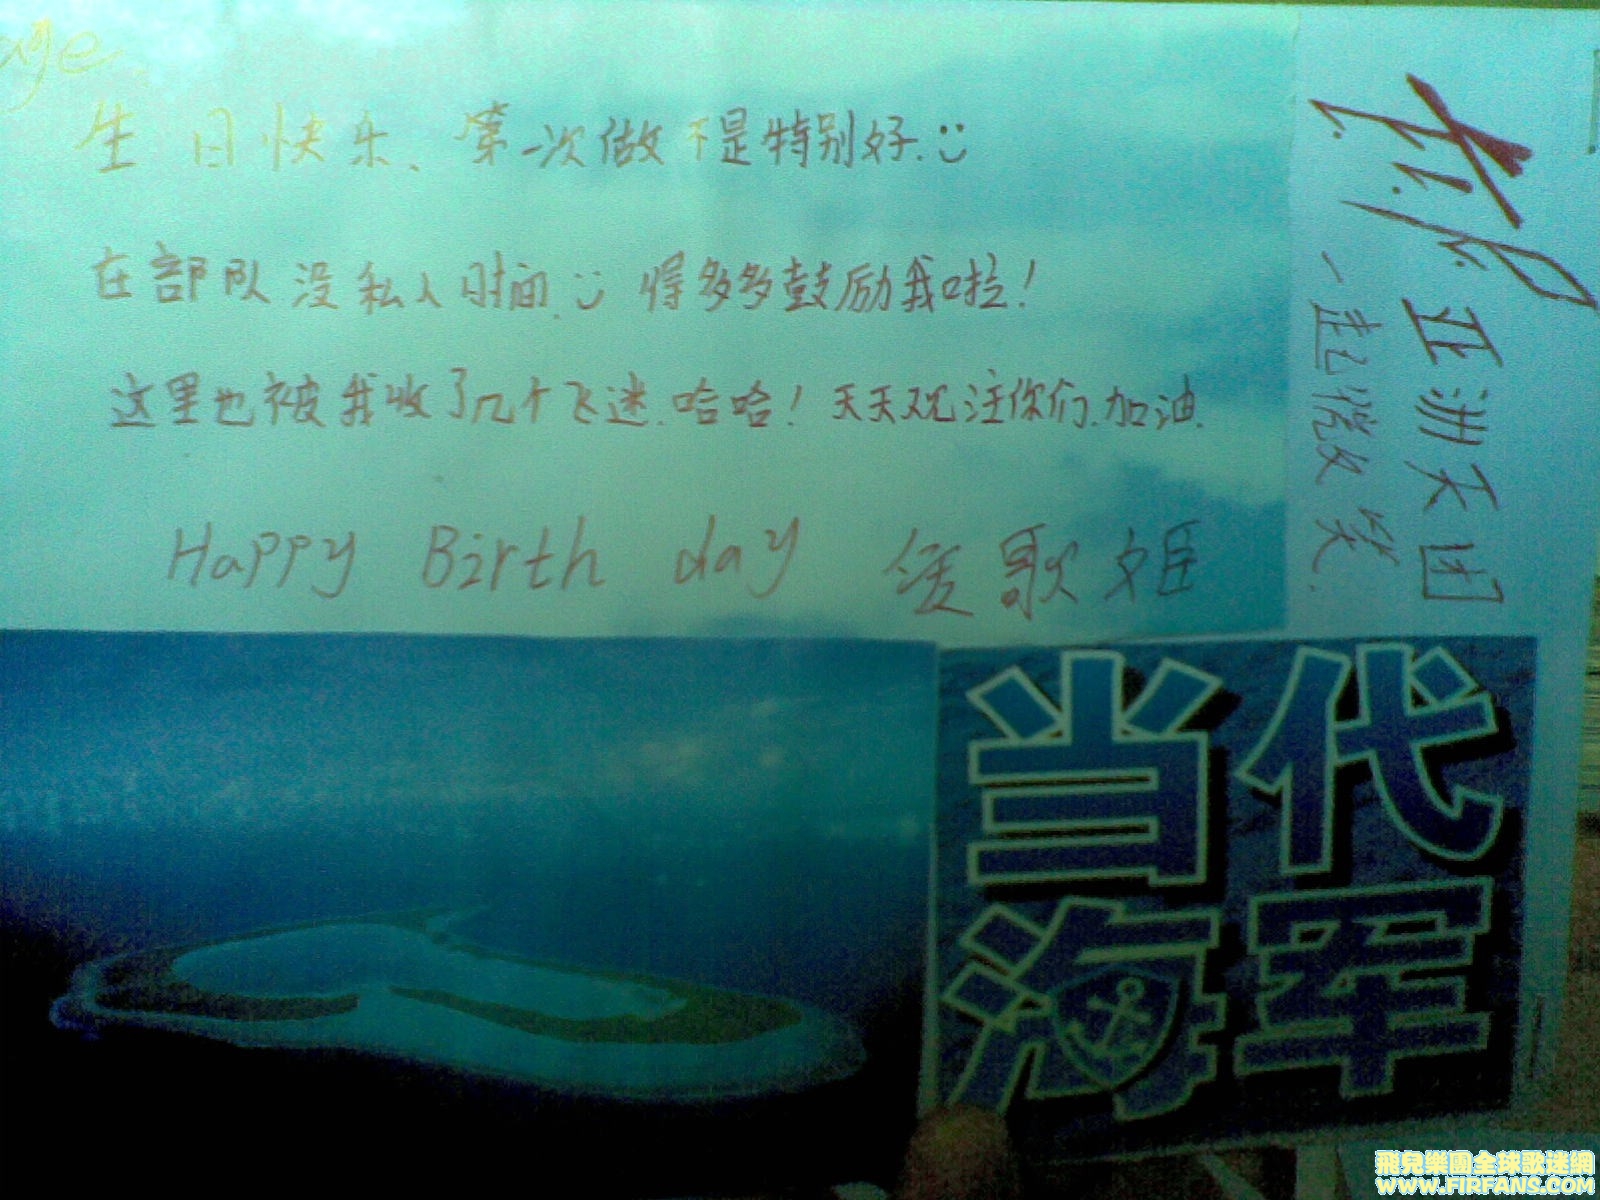 生日快乐、第一次做不是特别好.
在部队没私人时间. 得多多鼓励我啦!
这里也被我收了几个飞迷.哈哈! 天天观注你们.加油.
Happy Birth day 歌姬
F.I.R 亚洲天团
一起微笑.
当代
海军
飛兒樂團全球歌迷網
WWW.FIRFANS.COM